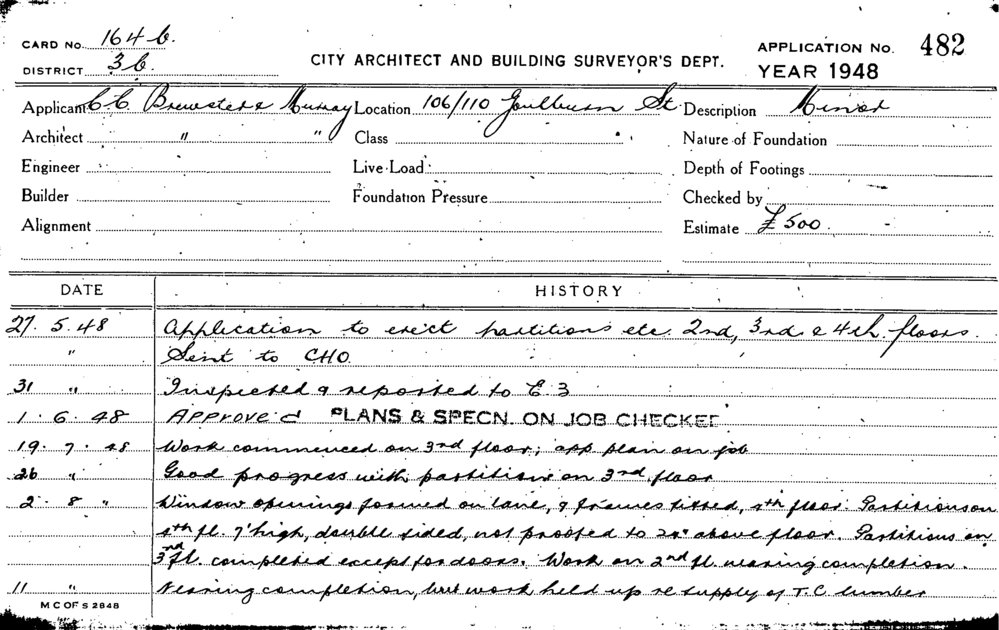 CARD No. 164 b.
DISTRICT 3b.
CITY ARCHITECT AND BUILDING SURVEYOR'S DEPT.
APPLICATION No. 482
YEAR 1948
Applicant C. C. Brewster & Murray Location 106/110 Goulburn St. Description Minor
Architect " " Class Nature of Foundation
Engineer Live Load Depth of Footings
Builder Foundation Pressure Checked by
Alignment Estimate £500.
DATE HISTORY
27. 5. 48 Application to erect partitions etc. 2nd, 3rd & 4th floors.
" Sent to CHO.
31 " Inspected & reported to E 3
1. 6. 48 Approved PLANS & SPECN. ON JOB CHECKED
19. 7. 48 Work commenced on 3rd floor; app plan on job
26 " Good progress with partitions on 3rd floor
2. 8 " Window openings formed on lane, & frames fitted, 4th floor. Partitions on
4th fl. 7' high, double sided, not proofed to 24" above floor. Partitions on
3rd fl. completed except for doors. Work on 2nd fl. nearing completion.
11 " Nearing completion, but work held up re supply of T.C. lumber
M C OF S 2848